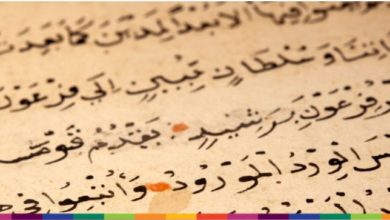 فِيهَا أَلَا بُعْدًا لِمَدْيَنَ كَمَا بَعِدَتْ
وَسُلْطَانٍ مُبِينٍ إِلَى فِرْعَوْنَ
فِرْعَوْنَ بِرَشِيدٍ يَقْدُمُ قَوْمَهُ
الْوِرْدُ الْمَوْرُودُ وَأُتْبِعُوا فِي